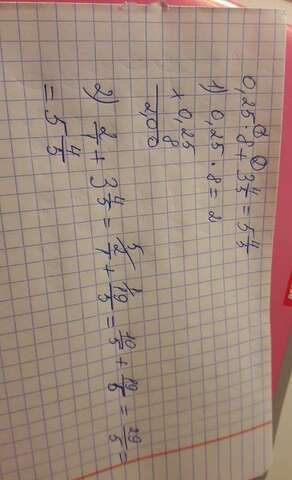 0,25 · 8 + 3 4/5 = 5 4/5
1) 0,25 · 8 = 2
× 0,25
8
2,00
2) 2/1 + 3 4/5 = 2/1 + 19/5 = 10/5 + 19/5 = 29/5 =
= 5 4/5